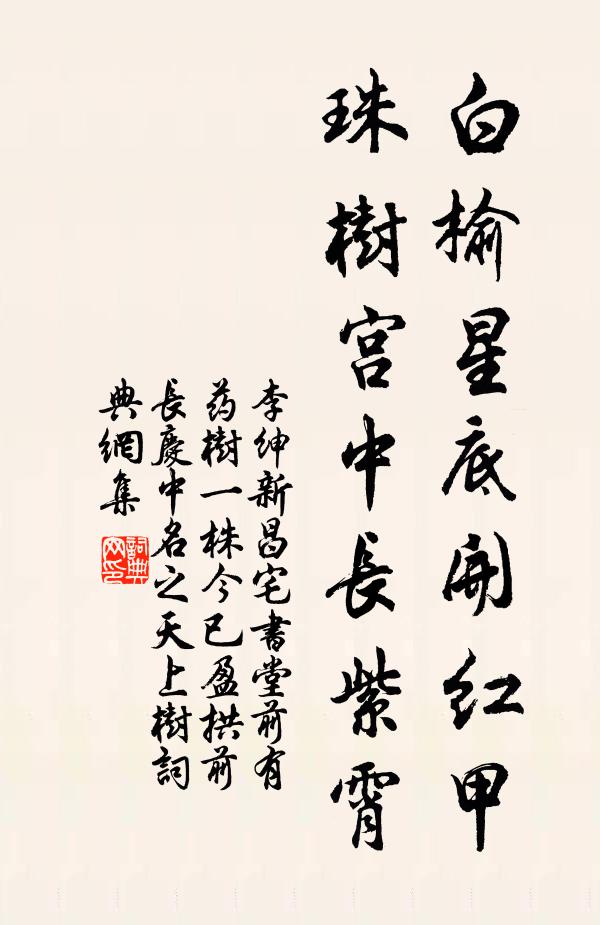 白榆星底開红甲
珠樹宫中長紫霄
李紳新昌宅書堂前有
药樹一株今已盈拱前
長慶中名之天上樹詞
典網集
詞典
网印